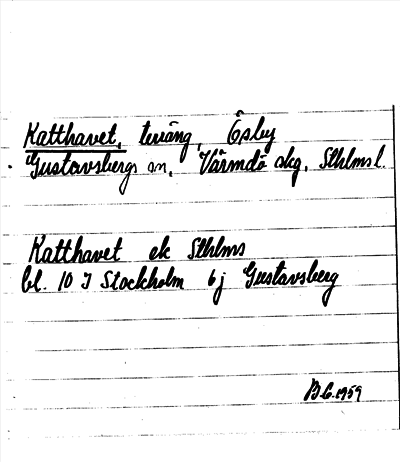 Katthavet, terräng, Ösby
Gustavsbergs sn, Värmdö skg, Sthlms l.
Katthavet ek Sthlms
bl. 10 I Stockholm 6j Gustavsberg
B.G. 1959